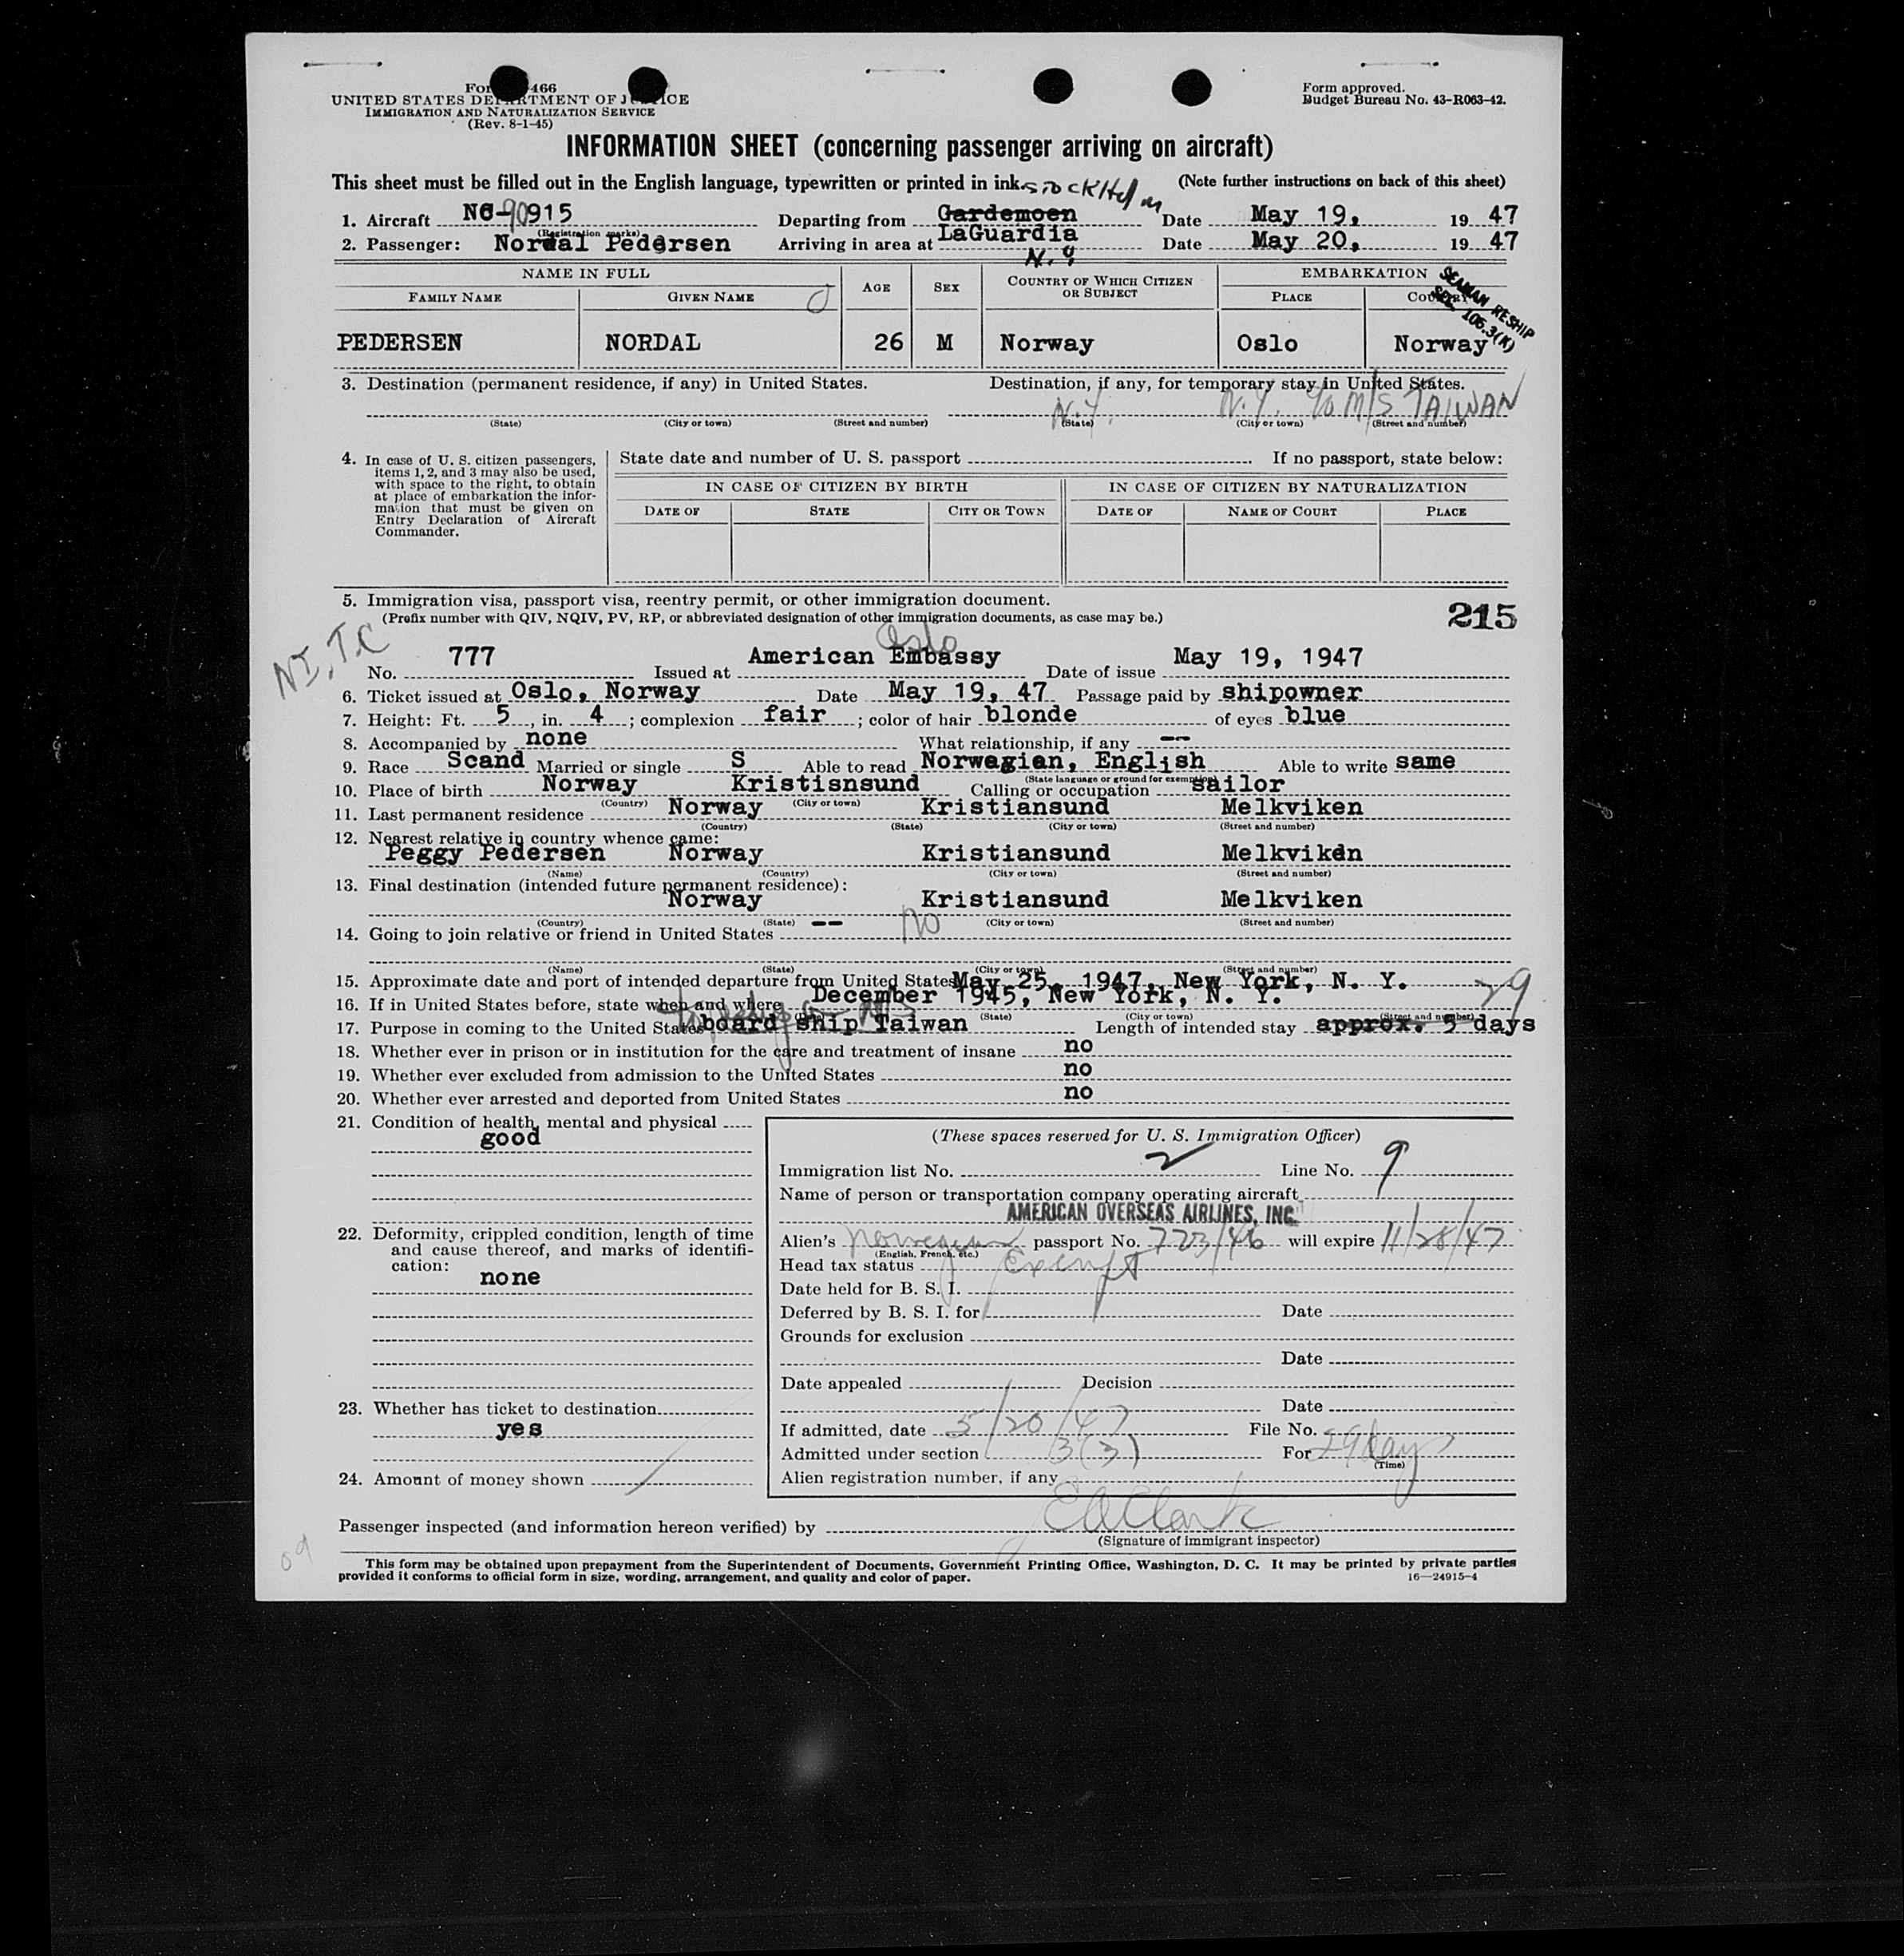 Form 466
UNITED STATES DEPARTMENT OF JUSTICE
IMMIGRATION AND NATURALIZATION SERVICE
(Rev. 8-1-45)
Form approved.
Budget Bureau No. 43-R063-42.
INFORMATION SHEET (concerning passenger arriving on aircraft)
This sheet must be filled out in the English language, typewritten or printed in ink. (Note further instructions on back of this sheet)
Stockholm
1. Aircraft NC-90915 Departing from Gardemoen Date May 19, 1947
(Registration marks)
2. Passenger: Nordal Pedersen Arriving in area at LaGuardia Date May 20, 1947
N.Y.
NAME IN FULL AGE SEX COUNTRY OF WHICH CITIZEN OR SUBJECT EMBARKATION
FAMILY NAME GIVEN NAME PLACE COUNTRY
SEAMAN RESHIP
SEC 106.3(K)
PEDERSEN NORDAL 26 M Norway Oslo Norway
3. Destination (permanent residence, if any) in United States. Destination, if any, for temporary stay in United States.
N.Y. N.Y. c/o M/S TAIWAN
(State) (City or town) (Street and number) (State) (City or town) (Street and number)
4. In case of U. S. citizen passengers, items 1, 2, and 3 may also be used, with space to the right, to obtain at place of embarkation the information that must be given on Entry Declaration of Aircraft Commander.
State date and number of U. S. passport If no passport, state below:
IN CASE OF CITIZEN BY BIRTH IN CASE OF CITIZEN BY NATURALIZATION
DATE OF STATE CITY OR TOWN DATE OF NAME OF COURT PLACE
5. Immigration visa, passport visa, reentry permit, or other immigration document.
(Prefix number with QIV, NQIV, PV, RP, or abbreviated designation of other immigration documents, as case may be.)
215
NI, TC
Oslo
No. 777 Issued at American Embassy Date of issue May 19, 1947
6. Ticket issued at Oslo, Norway Date May 19, 47 Passage paid by shipowner
7. Height: Ft. 5, in. 4; complexion fair; color of hair blonde of eyes blue
8. Accompanied by none What relationship, if any --
9. Race Scand Married or single S Able to read Norwegian, English Able to write same
(State language or ground for exemption)
10. Place of birth Norway Kristisnsund Calling or occupation sailor
(Country) (City or town)
11. Last permanent residence Norway Kristiansund Melkviken
(Country) (State) (City or town) (Street and number)
12. Nearest relative in country whence came:
Peggy Pedersen Norway Kristiansund Melkviken
(Name) (Country) (City or town) (Street and number)
13. Final destination (intended future permanent residence):
Norway Kristiansund Melkviken
(Country) (State) (City or town) (Street and number)
14. Going to join relative or friend in United States -- No
(Name) (State) (City or town) (Street and number)
15. Approximate date and port of intended departure from United States May 25, 1947, New York, N. Y.
16. If in United States before, state when and where December 1945, New York, N. Y.
29
(State) (City or town) (Street and number)
17. Purpose in coming to the United States board ship Taiwan Length of intended stay approx. 5 days
18. Whether ever in prison or in institution for the care and treatment of insane no
19. Whether ever excluded from admission to the United States no
20. Whether ever arrested and deported from United States no
21. Condition of health, mental and physical
good
22. Deformity, crippled condition, length of time and cause thereof, and marks of identification:
none
23. Whether has ticket to destination
yes
24. Amount of money shown
(These spaces reserved for U. S. Immigration Officer)
Immigration list No. 2 Line No. 9
Name of person or transportation company operating aircraft
AMERICAN OVERSEAS AIRLINES, INC.
Alien's Norwegian passport No. 773/46 will expire 11/28/47
(English, French, etc.)
Head tax status Exempt
Date held for B. S. I.
Deferred by B. S. I. for Date
Grounds for exclusion
Date
Date appealed Decision
Date
If admitted, date 5/20/47 File No.
Admitted under section 3(3) For 29 days
(Time)
Alien registration number, if any
Passenger inspected (and information hereon verified) by E A Clark
(Signature of immigrant inspector)
This form may be obtained upon prepayment from the Superintendent of Documents, Government Printing Office, Washington, D. C. It may be printed by private parties
provided it conforms to official form in size, wording, arrangement, and quality and color of paper. 16—24915-4